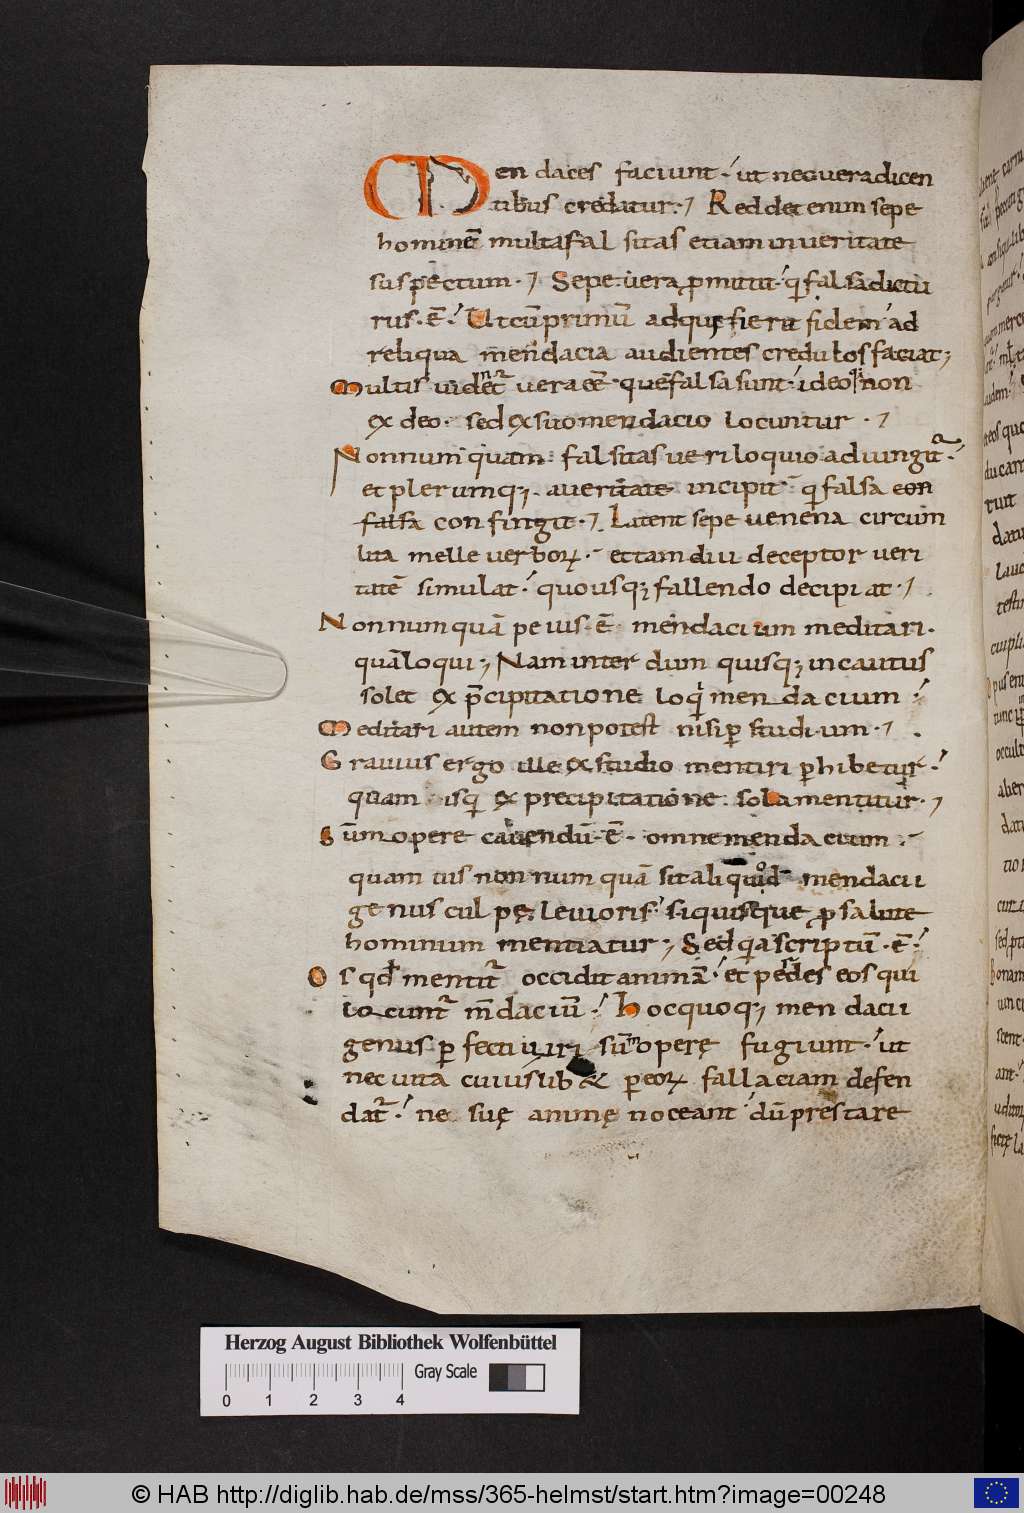 Mendaces faciunt ut nec vera dicen
tibus credatur. Reddet enim sepe
hominē multa falsitas etiam in veritate
suspectum. Sepe vera p̄mittit qͥ falsa dictu
rus ē. Ut cū primū adquisierit fidem ad
reliqua mendacia audientes credulos faciat;
Multis videntͬ vera eē que falsa sunt ideo non
ex deo sed ex suo mendacio locuntur.
Nonnumquam falsitas veriloquio adiungitͬ.
et plerumq; a veritate incipit qͥ falsa con
falsa confingit. Latent sepe venena circum
lita melle verboꝝ. et tamdiu deceptor veri
tatē simulat. quousq; fallendo decipiat.
Nonnumquā peius ē mendacium meditari.
quā loqui; Nam interdum quisq; incautus
solet ex p̄cipitatione loqͥ mendacium
Meditari autem non potest nisi ꝑ studium.
Gravius ergo ille ex studio mentiri ꝑhibetur.
quam isqͥ ex precipitatione sola mentitur.
Sūmopere cavendū ē omne mendacium
quam vis nonnumquā sit aliquod mendacii
genus culpę levioris. si quisque ꝓ salute
hominum mentiatur; Sed qͥa scriptū ē.
Os qd̄ mentitͬ occidit animā. et perdes eos qui
locuntͬ m̄daciū. Hoc quoq; mendacii
genus ꝑfecti viri sūmoperę fugiunt. ut
nec vita cuiuslib& ꝑ eoꝝ fallaciam defen
datͬ. ne suę animę noceant dū prestare
Herzog August Bibliothek Wolfenbüttel
0 1 2 3 4 Gray Scale
© HAB http://diglib.hab.de/mss/365-helmst/start.htm?image=00248